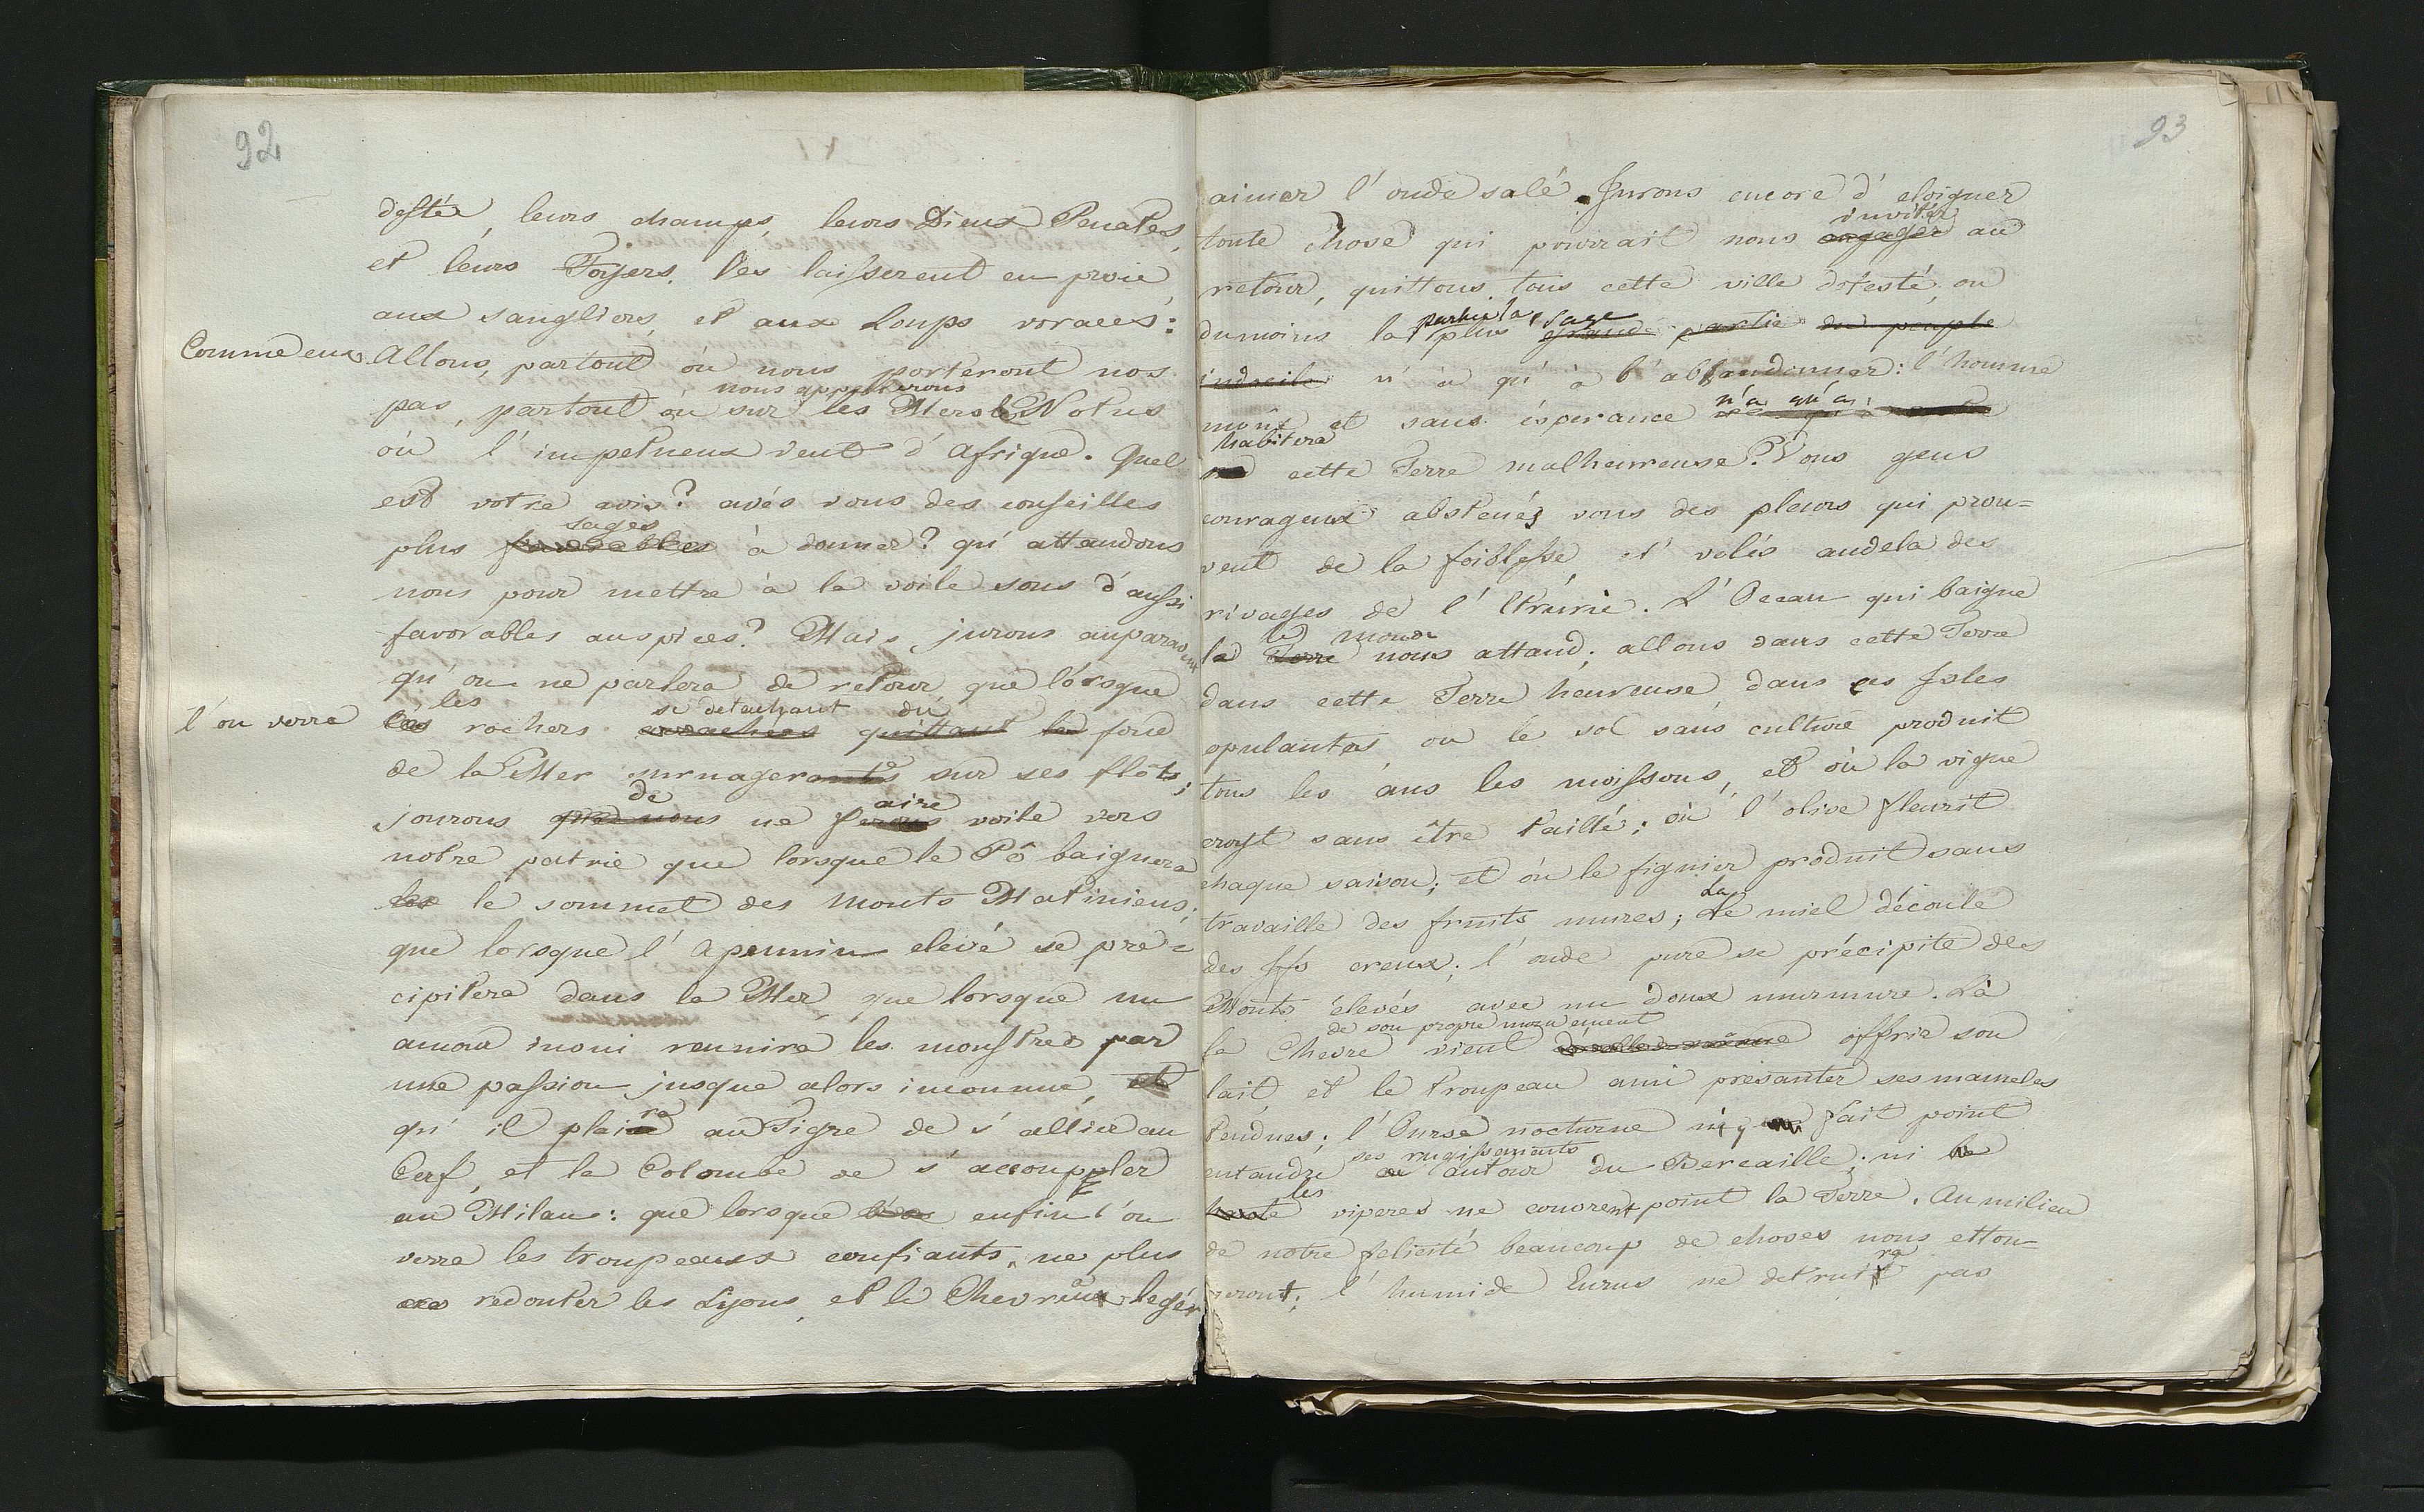 92
destée, leurs champs, leurs Dieux Penates,
et leurs Foyers. Les laisserent en proie
aux sangliers, et aux Loups voraces:
Comme eux. Allons, partout où nous porteront nos
nous appellerons
pas, partout où sur les Mers le Notus
où l'impetueux vent d'afrique. Quel
est votre avis? avés vous des conseilles
sages
plus favorables à donner? qu'attandons
nous pour mettre à la voile sous d'aussi
favorables auspices? Mais, jurons auparavent
qu'on ne parlera de retour que lorsque
les se detachant du
l'on verra les rochers arrachees quittant le fond
de la Mer surnagerants sur ses flôts;
de aire
jourons que nous ne ferons voile vers
notre patrie que lorsque le Pô baignera
les le sommet des Monts Matiniens;
que lorsque l'Apennin elevé se pré=
cipitera dans la Mer, que lorsque un
amour inoui reunira les monstres par
une passion jusque alors inconnue, et
ra
qu'il plaise au Tigre de s'allier au
Cerf, et la Colombe de s'accouppler
au Milan: que lorsque enfin l'on
verra les troupeaux confiants, ne plus
redouter les Lyons, et le Chevreau legér
93
aimer l'onde salé. Jurons encore d'eloigner
inviter
toute chose qui pourrait nous engager au
retour, quittons tous cette ville detesté, ou
partie la sage
dumoins la plus grande partie du peuple
indocile n'à qu'à l'abbandonner: l'homme
n'a qu'a
moûx et sans ésperance
habitera
cette Terre malheureuse? Vous gens
courageux abstenés vous des pleurs qui prou=
vent de la foiblesse et volés audela des
rivages de l'Etrurie. L'Ocean qui baigne
le monde
la Terre nous attand; allons dans cette Terre
dans cette Terre heureuse dans ces Isles
opulantes où le sol sans culture produit
tous les ans les moissons, et où la vigne
croyt sans être taillé; où l'olive fleurit
chaque saison; et où le figuier produit sans
La
travaille des fruits mures; Le miel découle
des Ifs creux; l'onde pure se précipite des
Monts élevés avec un doux murmure. Là
de son propre mouvement
la Chevre vient offrir son
lait et le troupeau ami présanter ses mameles
tendues; l'Ourse nocturne n'y fait point
ses rugissements
entandre autour du Bercaille; ni
les
viperes ne couvrent point la Terre. Au milieu
de notre felicité beaucoup de choses nous etton=
ra
neront; l'humide Eurus ne detruit pas